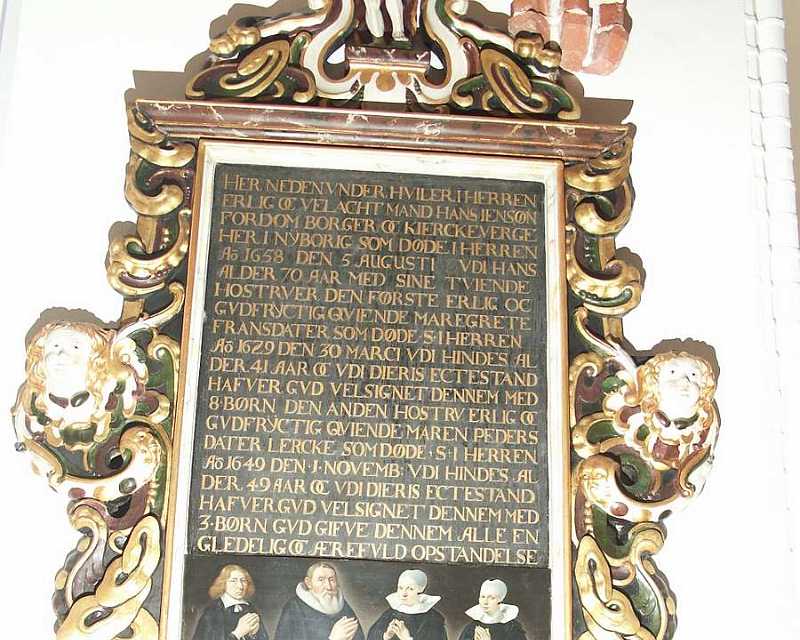 HER NEDENVNDER HVILER I HERREN
ERLIG OC VELACHT MAND HANS IENSØN
FORDOM BORGER OC KIERCKEVERGE
HER I NYBORIG SOM DØDE I HERREN
Aō 1658 DEN 5 AUGUSTI VDI HANS
ALDER 70 AAR MED SINE TVIENDE
HOSTRVER DEN FØRSTE ERLIG OC
GVDFRYCTIG QVIENDE MAREGRETE
FRANSDATER SOM DØDE S·I HERREN
Aō 1629 DEN 30 MARCI VDI HINDES AL
DER 41 AAR OC VDI DIERIS ECTESTAND
HAFVER GVD VELSIGNET DENNEM MED
8·BØRN DEN ANDEN HOSTRV ERLIG OC
GVDFRYCTIG QVIENDE MAREN PEDERS
DATER LERCKE SOM DØDE·S·I HERREN
Aō 1649 DEN·1·NOVEMB: VDI HINDES AL
DER 49 AAR OC VDI DIERIS ECTESTAND
HAFVER GVD VELSIGNET DENNEM MED
3·BØRN GVD GIFVE DENNEM ALLE EN
GLEDELIG OC ÆREFVLD OPSTANDELSE